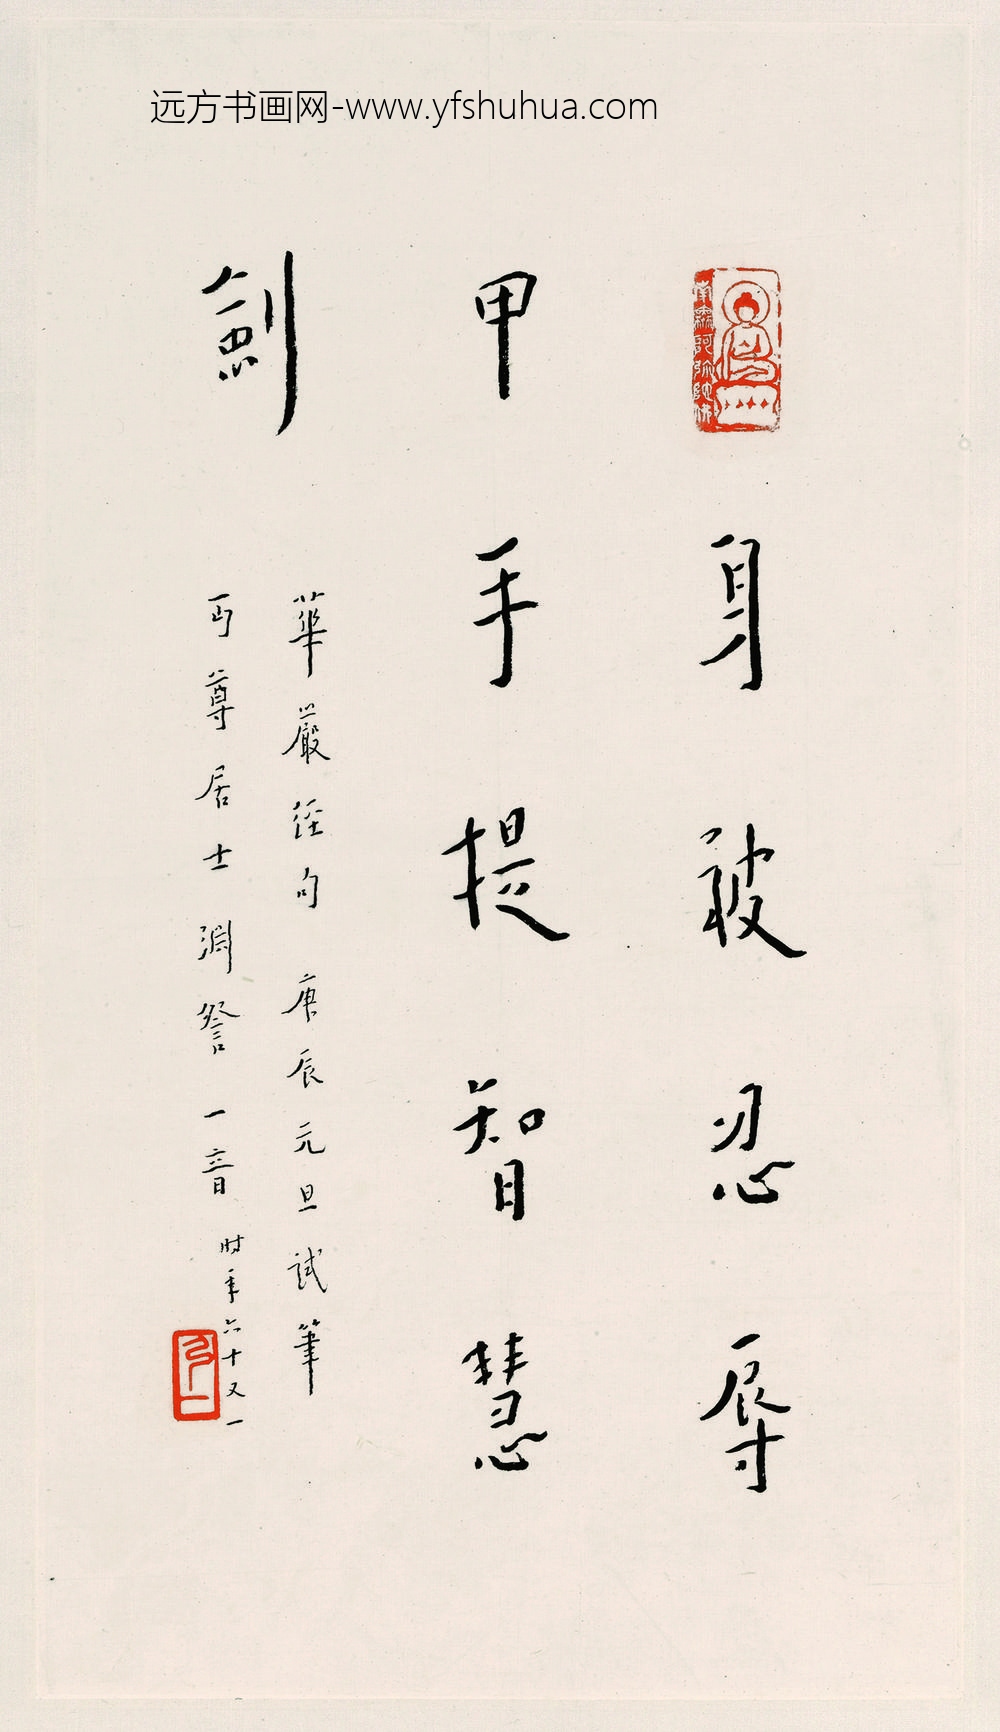 远方书画网-www.yfshuhua.com
南無阿弥陀佛
身被忍辱
甲手提智慧
劍
華嚴經句 庚辰元旦試筆
丏尊居士淵詧 一音 时年六十又一
弘一